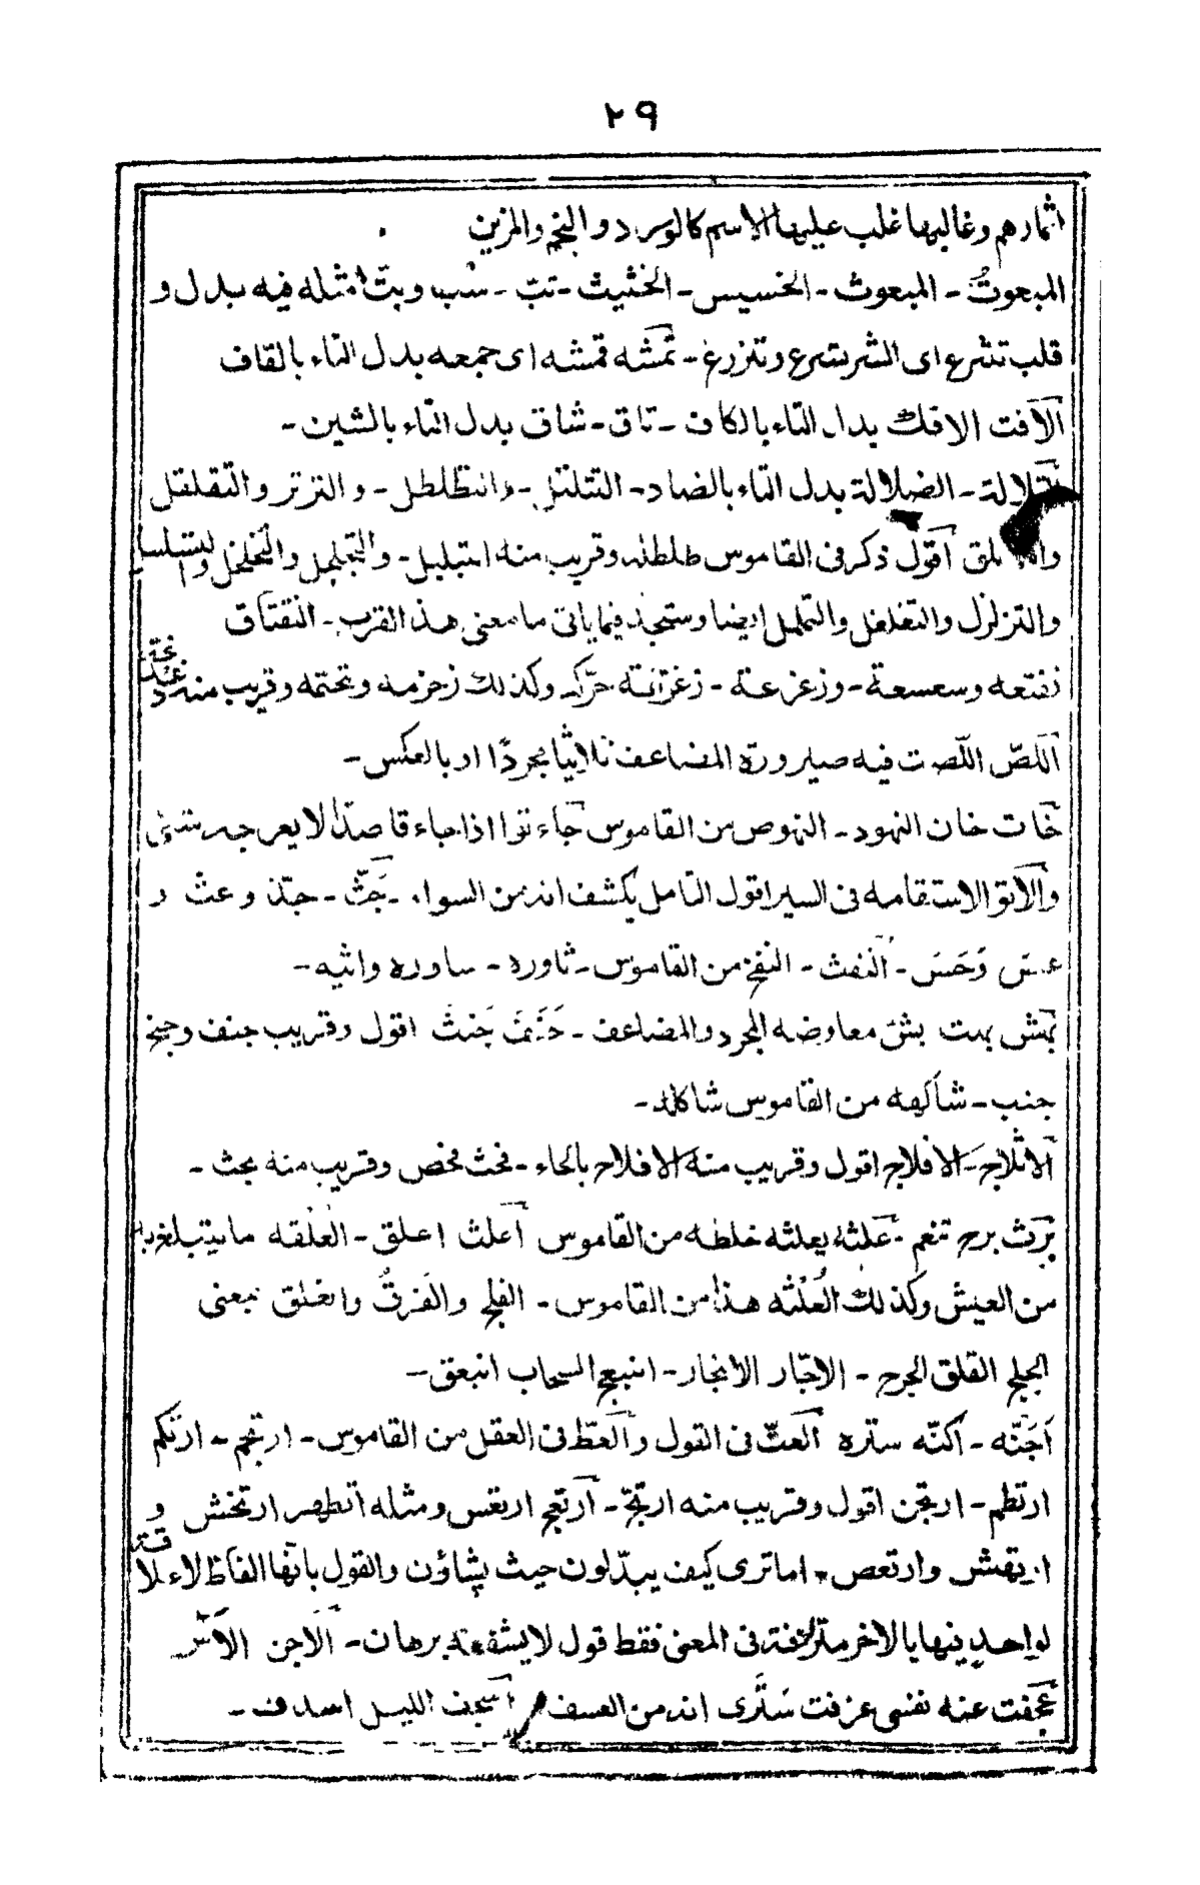 ٢٩
اثمارهم وغالبها غلب عليها الاسم كالورد والنجم والمزين
المبعوث - المبعوث - الخسيس - الخثيث - تبّ - شب وبتّ امثله فيه بدل و
قلب تشرع اى الشر يتسرع وتنزرغ - تمشه قمشه اى جمعه بدل التاء بالقاف
الآفت الافك بدل التاء بالكاف - تاق - شاق بدل التاء بالشين -
التلالة - الضلالة بدل التاء بالضاد - التتلتل - وانتظلطل - والتزتر والتقلقل
اقول ذكر فى القاموس طلطله وقريب منه ابتبليل - والتجلجل والتخلخل
والتزلزل والتغلغل والتململ ايضا وستجد فيما ياتى ما معنى هذ القرب - النقتاق
نفتعه وسعسعة - وزعزعة - زعزعة حرّكه وكذلك زحزمه وتحتمه وقريب منه
اللصّ اللّصت فيه صيرورة المضاعف ثلاثيا مجردًا او بالعكس -
خات خان النهود - النهوص من القاموس جاء توا اذا جاء قاصدًا لا يعرجه شئ
والآتو الاستقامه فى السير اقول التامل يكشف انه من السواء - جَثّ - جذّ وعث و
عسّ وَحَسَ - النفث - النفخ من القاموس - ثاوره - ساوره واثبه -
بهش بهت بش معاوضه المجرد والمضاعف - خَنَثَ جَنثَ اقول وقريب جنف وجنح
جنب - شاكهه من القاموس شاكله -
الاثلاج - الافلاج اقول وقريب منه الافلاح بالحاء - فحث فحص وقريب منه بحث -
برث برح تنعم - علثه يعلثه خلطه من القاموس اعلث اعلق - العلقه ما يتبلغ به
من العيش وكذلك العُلثه هذا من القاموس - الفلج والفرقُ وانفلق بمعنى
الجلج القلق الجرح - الاجّار الانجار - انبعج السحاب انبعق -
اَجَنّه - اكنّه ستره العثّ فى القول والعطّ فى العقل من القاموس - ارتجم - ارتكم
ارتطم - ارتجن اقول وقريب منه ارتجّ - ارتعج ارتعس ومثله انطهر ارتخش و
ارتهش وارتعص - اما ترى كيف يبدّلون حيث يشاؤن والقول بانّها الفاظ لا علاقة
لواحد منها بالاخر مترادفة فى المعنى فقط قول لا يشفعه برهان - الآجن الآسن
عجفت عنه نفسى عزفت سَتَرى انه من العسف اسجف الليل اسدف -